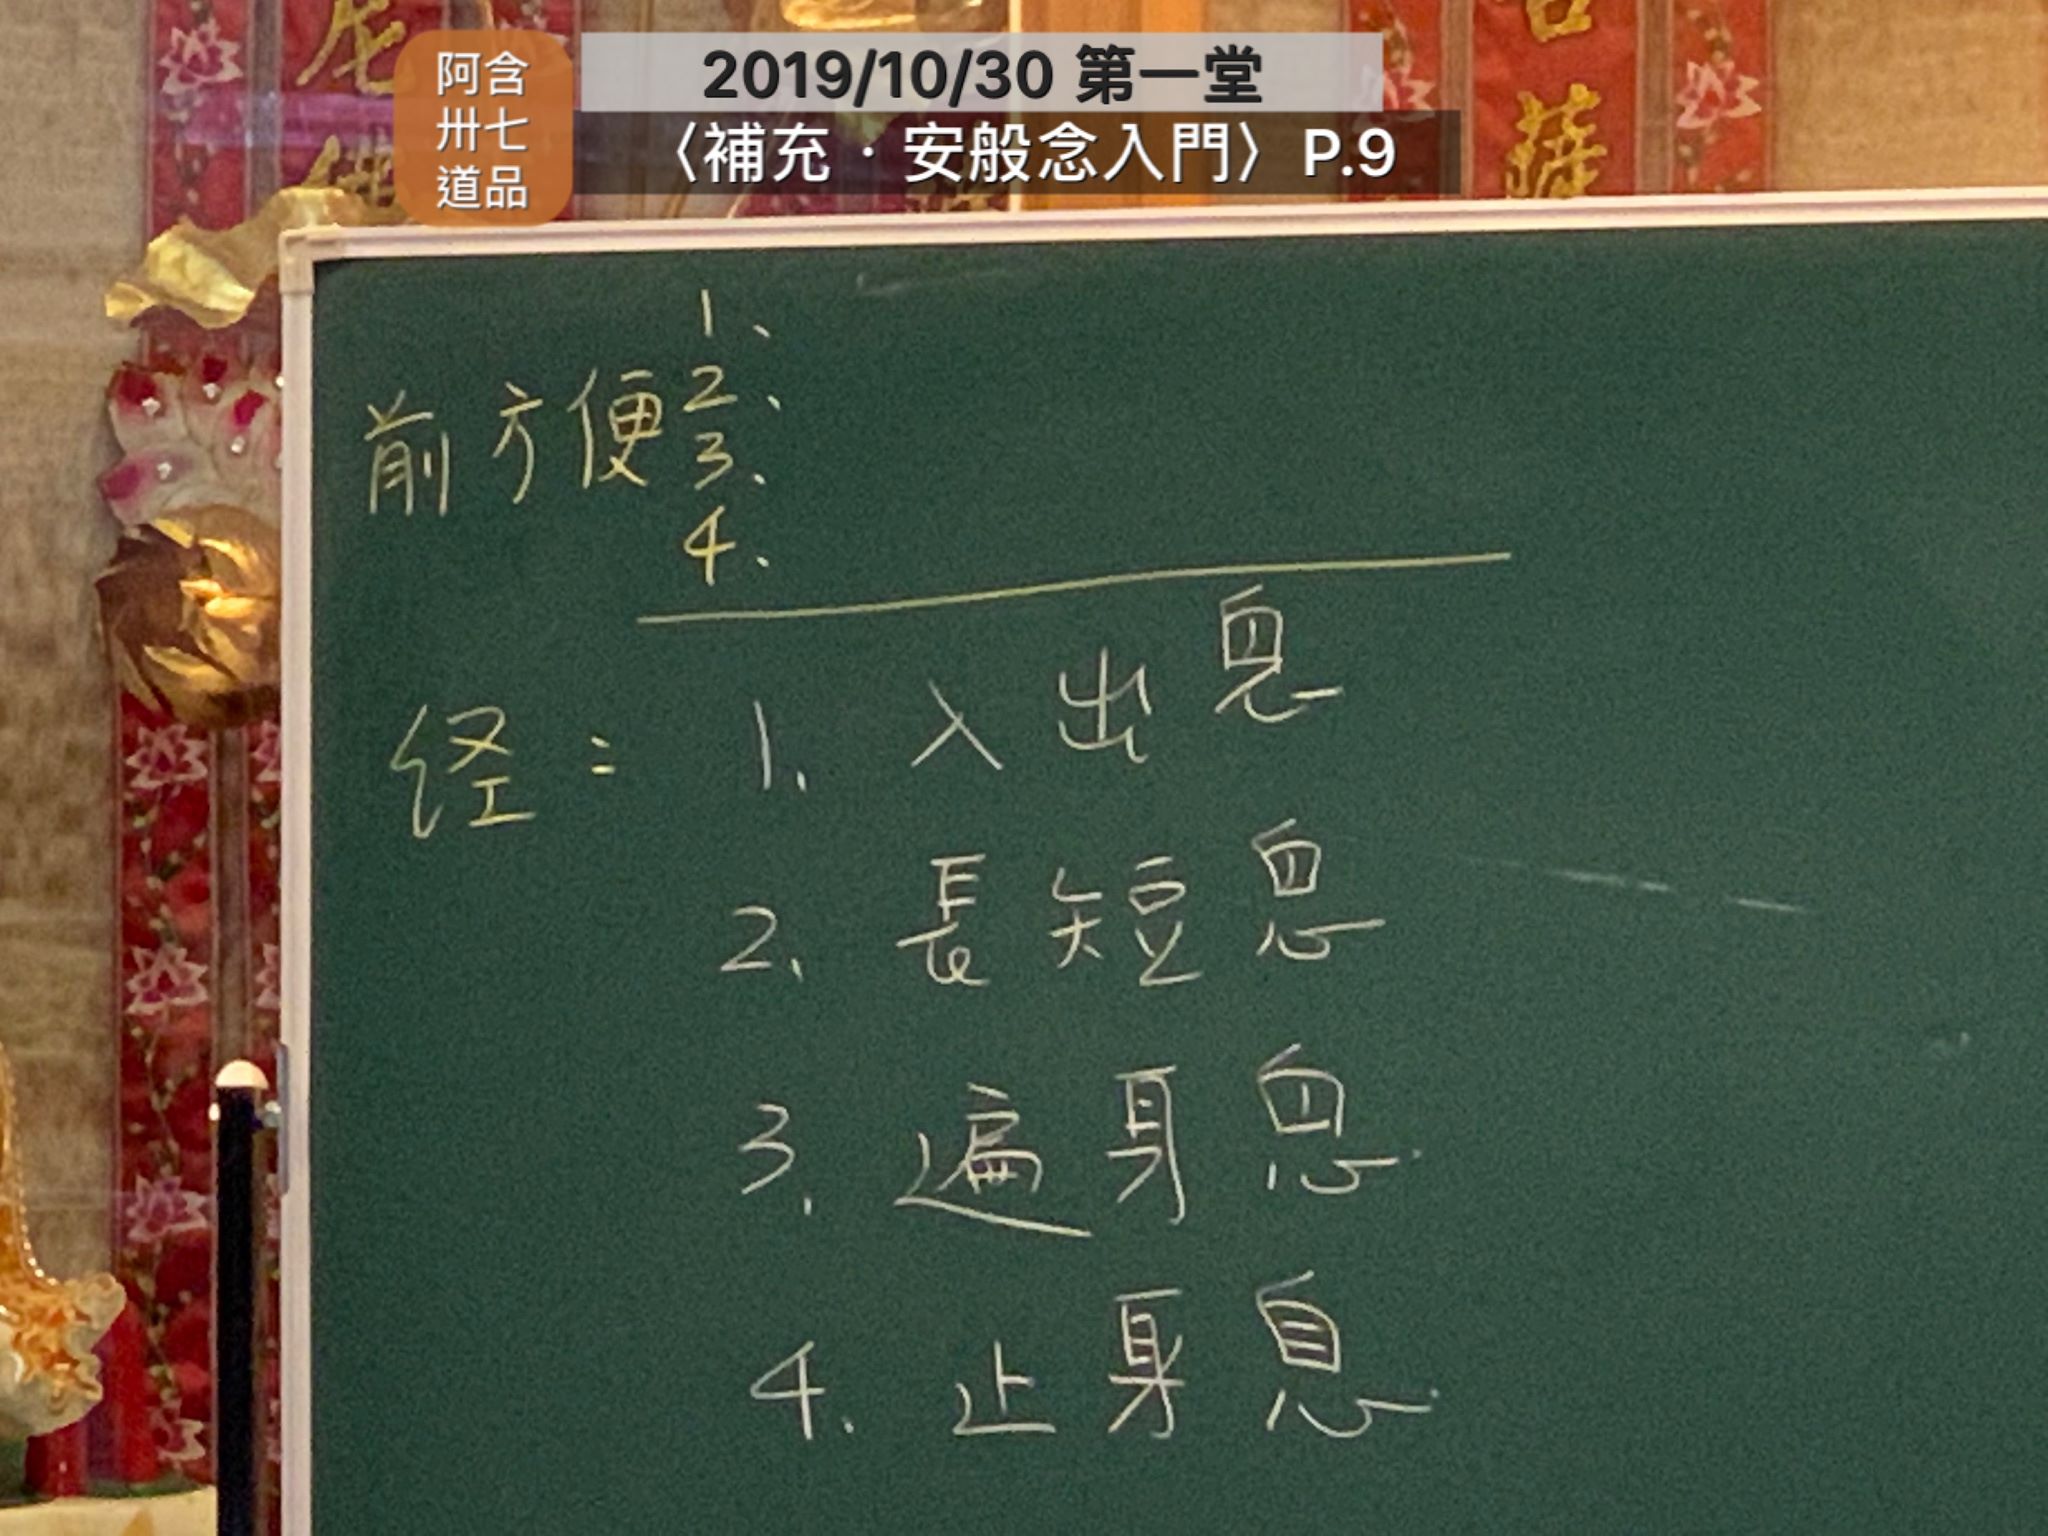 阿含
卅七
道品
2019/10/30 第一堂
〈補充·安般念入門〉P.9
前方便
1、
2、
3、
4、
经：
1、入出息
2、長短息
3、遍身息
4、止身息